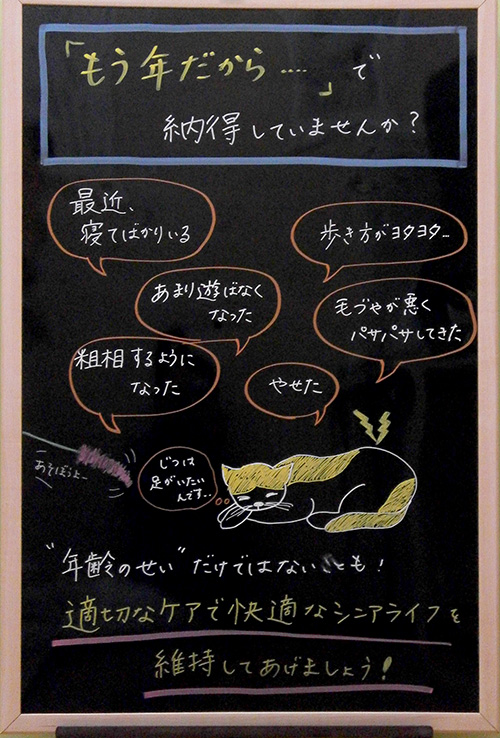 「もう年だから……」で
納得していませんか？
最近、
寝てばかりいる
歩き方がヨタヨタ…
あまり遊ばなく
なった
毛づやが悪く
パサパサしてきた
粗相するように
なった
やせた
あそぼうよー
じつは
足がいたい
んです…
"年齢のせい"だけではないことも！
適切なケアで快適なシニアライフを
維持してあげましょう！